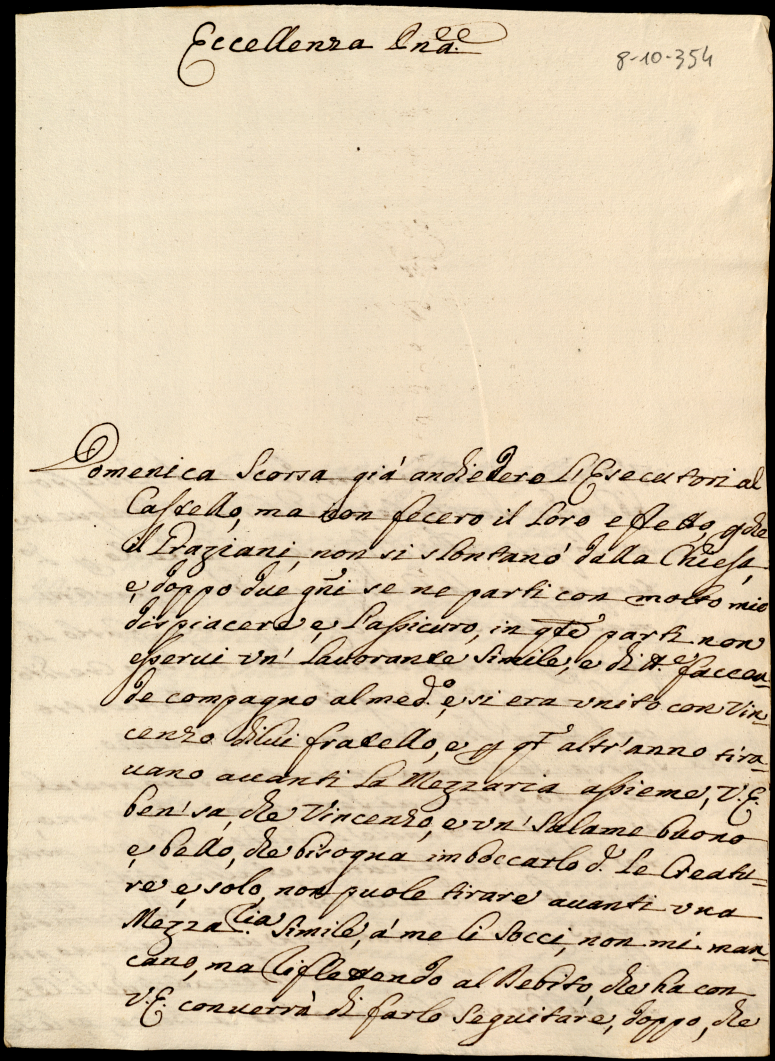 Eccellenza Pna
8-10-354
Domenica Scorsa giá andiedero Li Esecutori al
Castello, ma non fecero il loro effetto, p che
il Graziani, non si slontanó dalla Chiesa
e doppo due gni se ne parti con molto mio
dispiacere e L'assicuro, in qte parti non
esserui vn' Lauorante Simile, e di tte faccen-
de compagno al med.o, e si era vnito con Vin-
cenzo di lui fratello, e p qt altr'anno tira-
uano auanti La Mezzaria assieme, V.E.
ben' sa, che Vincenzo, e vn' Salame buono
e bello, che bisogna imboccarlo d. le Creatu-
re e solo non puole tirare auanti vna
Mezzaria Simile, á me li Socci, non mi man-
cano, ma Riflettendo al Debito, che ha con
V.E. conuerrà di farlo Seguitare, doppo, che